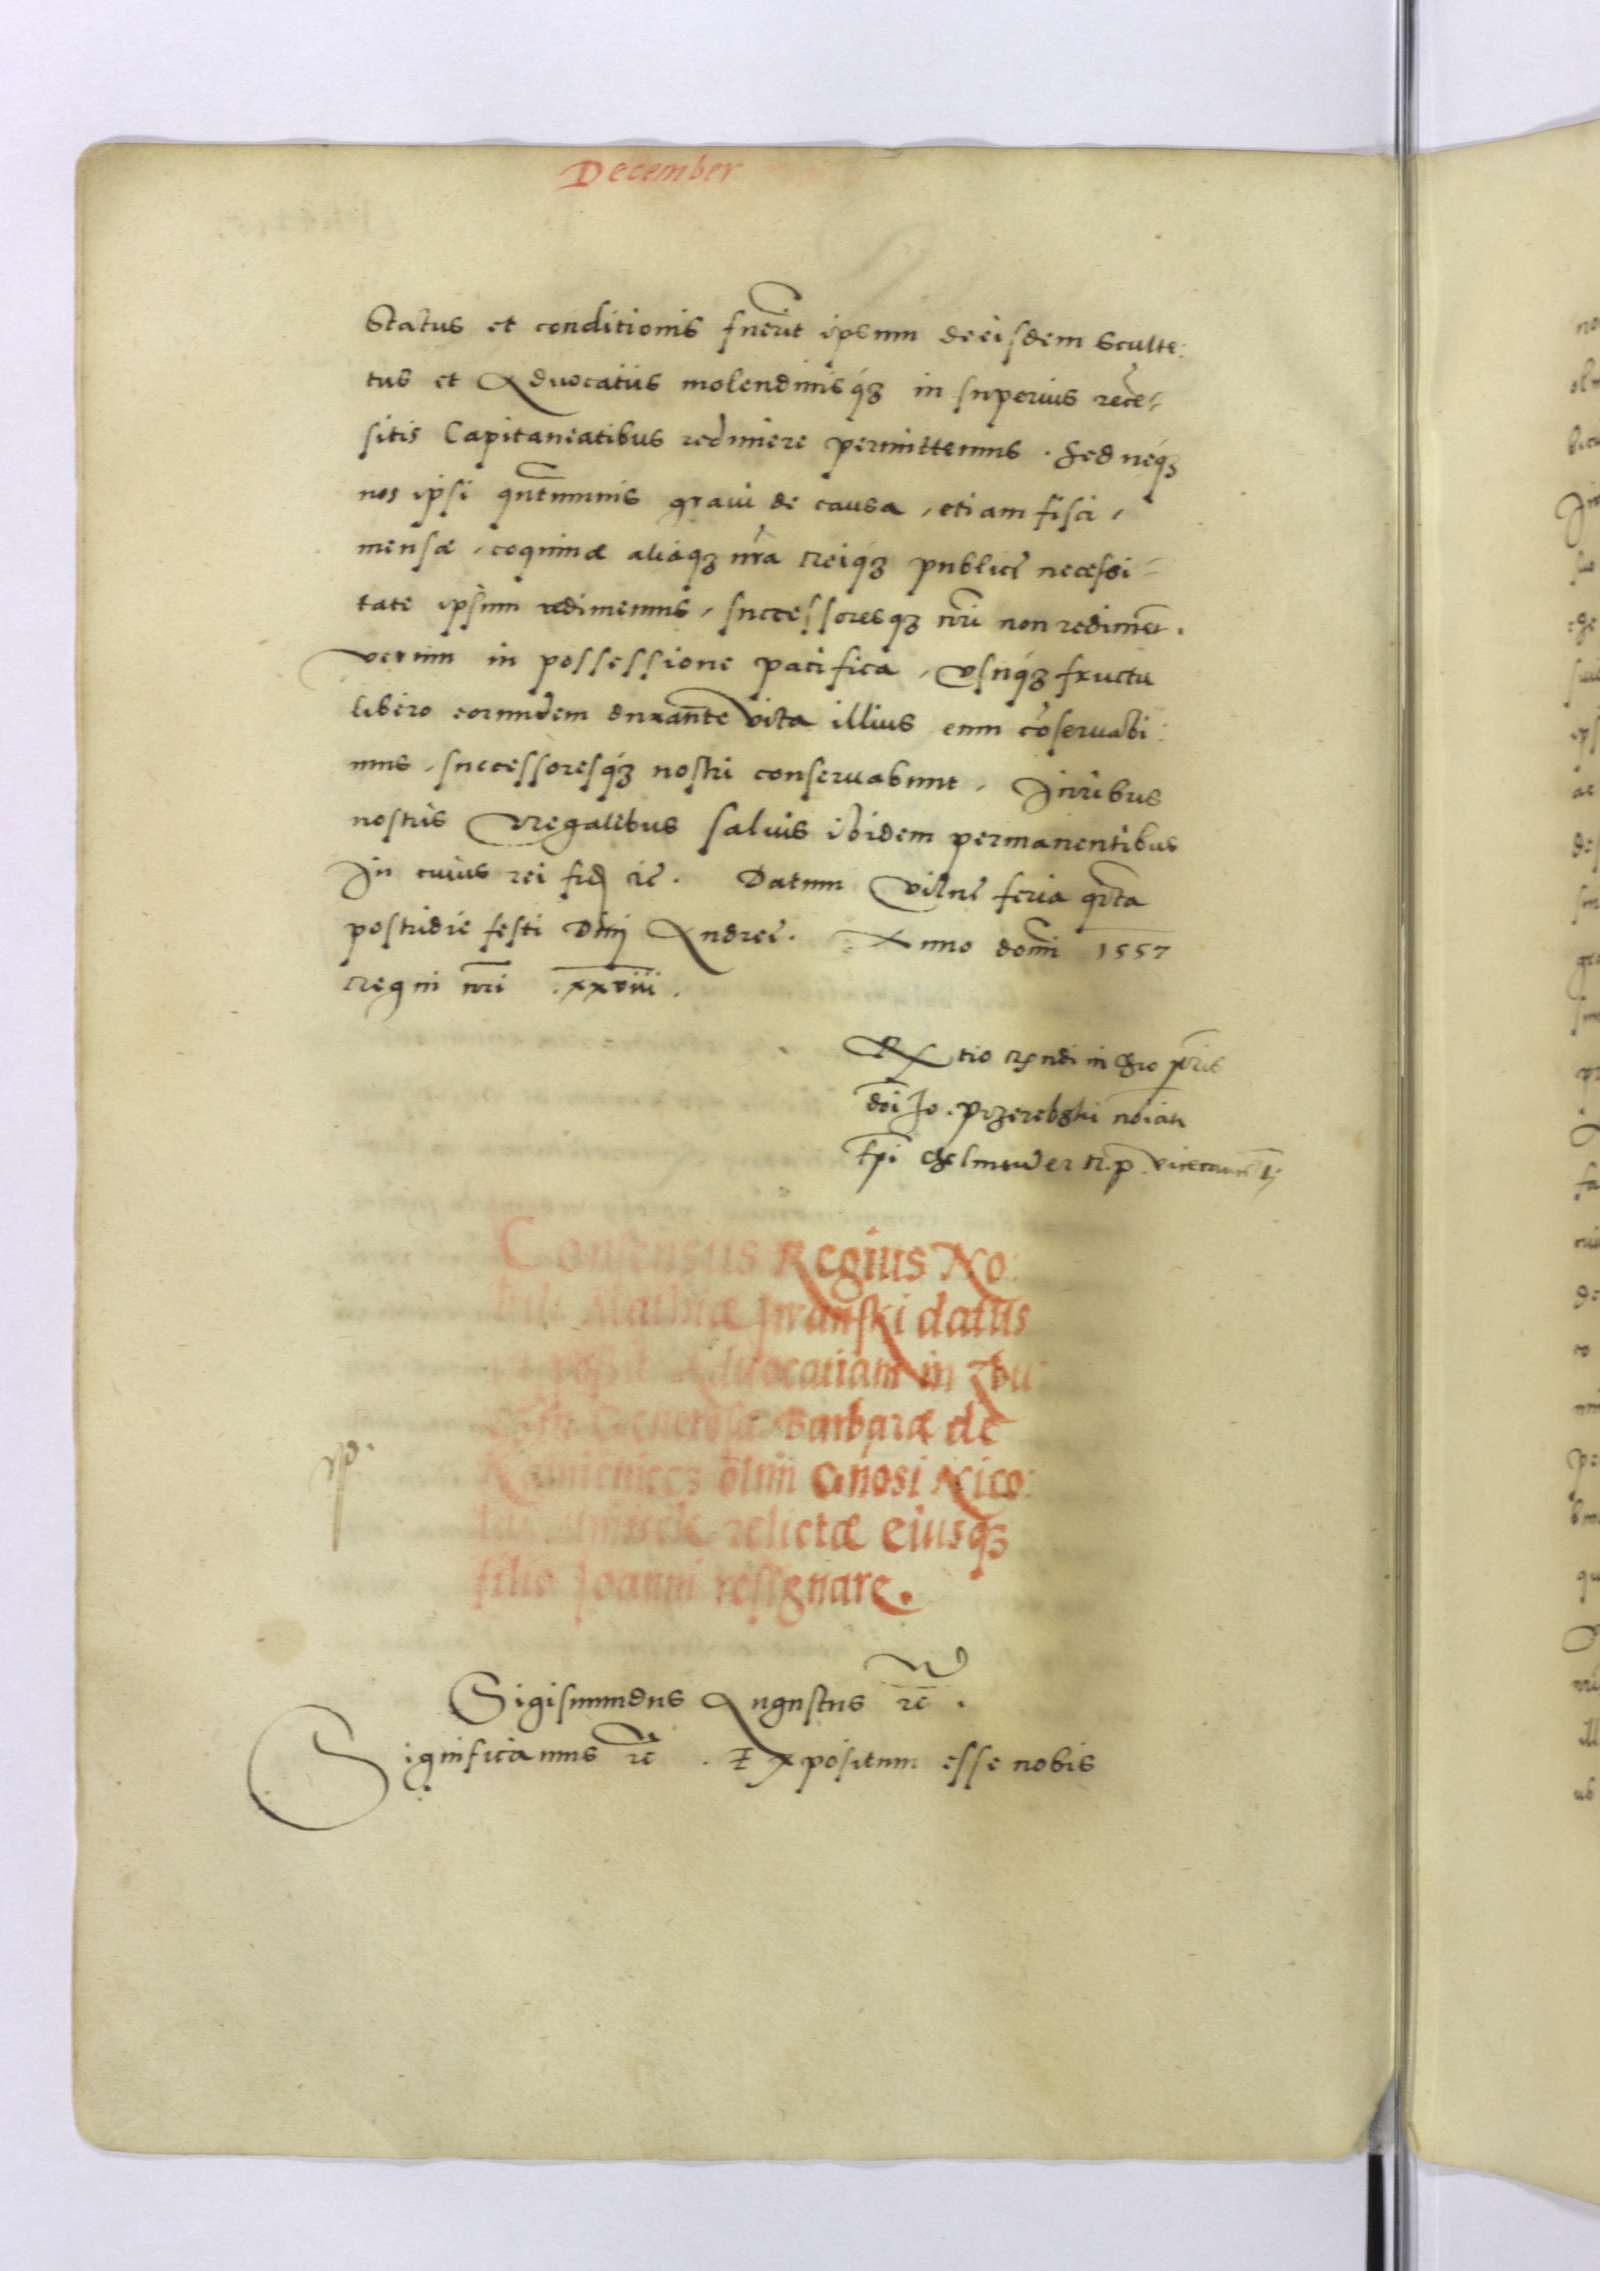 December
Status et conditionis fuerit ipsum de eisdem Sculte:
tus et Aduocatiis molendinisq́ꝫ in superius recē-
sitis Capitaneatibus redimere permittemus. Sed neq́ꝫ
nos ipsi quātumuis graui de causa, etiam fisci,
mensæ, coquinæ aliaq́ꝫ nr̃a Reiq́ꝫ publicę necessi-
tate ipsum redimemus, successoresq́ꝫ nr̃i non rediment.
verum in possessione pacifica, vsuq́ꝫ fructu
libero eorundem durante vita illius eum cõseruabi:
mus, successoresq́ꝫ nostri conseruabunt, Juribus
nostris Regalibus saluis ibidem permanentibus
In cuius rei fidẽ &c. Datum Vilnę feria q̃rta
postridie festi Diui Andreę. Anno domĩ 1557
Regni nr̃i .xxviii.
Rtio Rndi in Chro pr̃is
dñi Jo. Przerebski nõiati
Ep̃i Chelmeñ et R. P. vicecanc̃
Consensus Regius No:
bili Mathiæ Jwanski datus
Aduocatiam in Zbu
Generosæ Barbaræ de
Kamieniecz olim Gnosi Nico:
lai relictæ eiusq́ꝫ
filio Joanni resignare.
Sigismundus Augustus &c.
Significamus &c. Expositum esse nobis